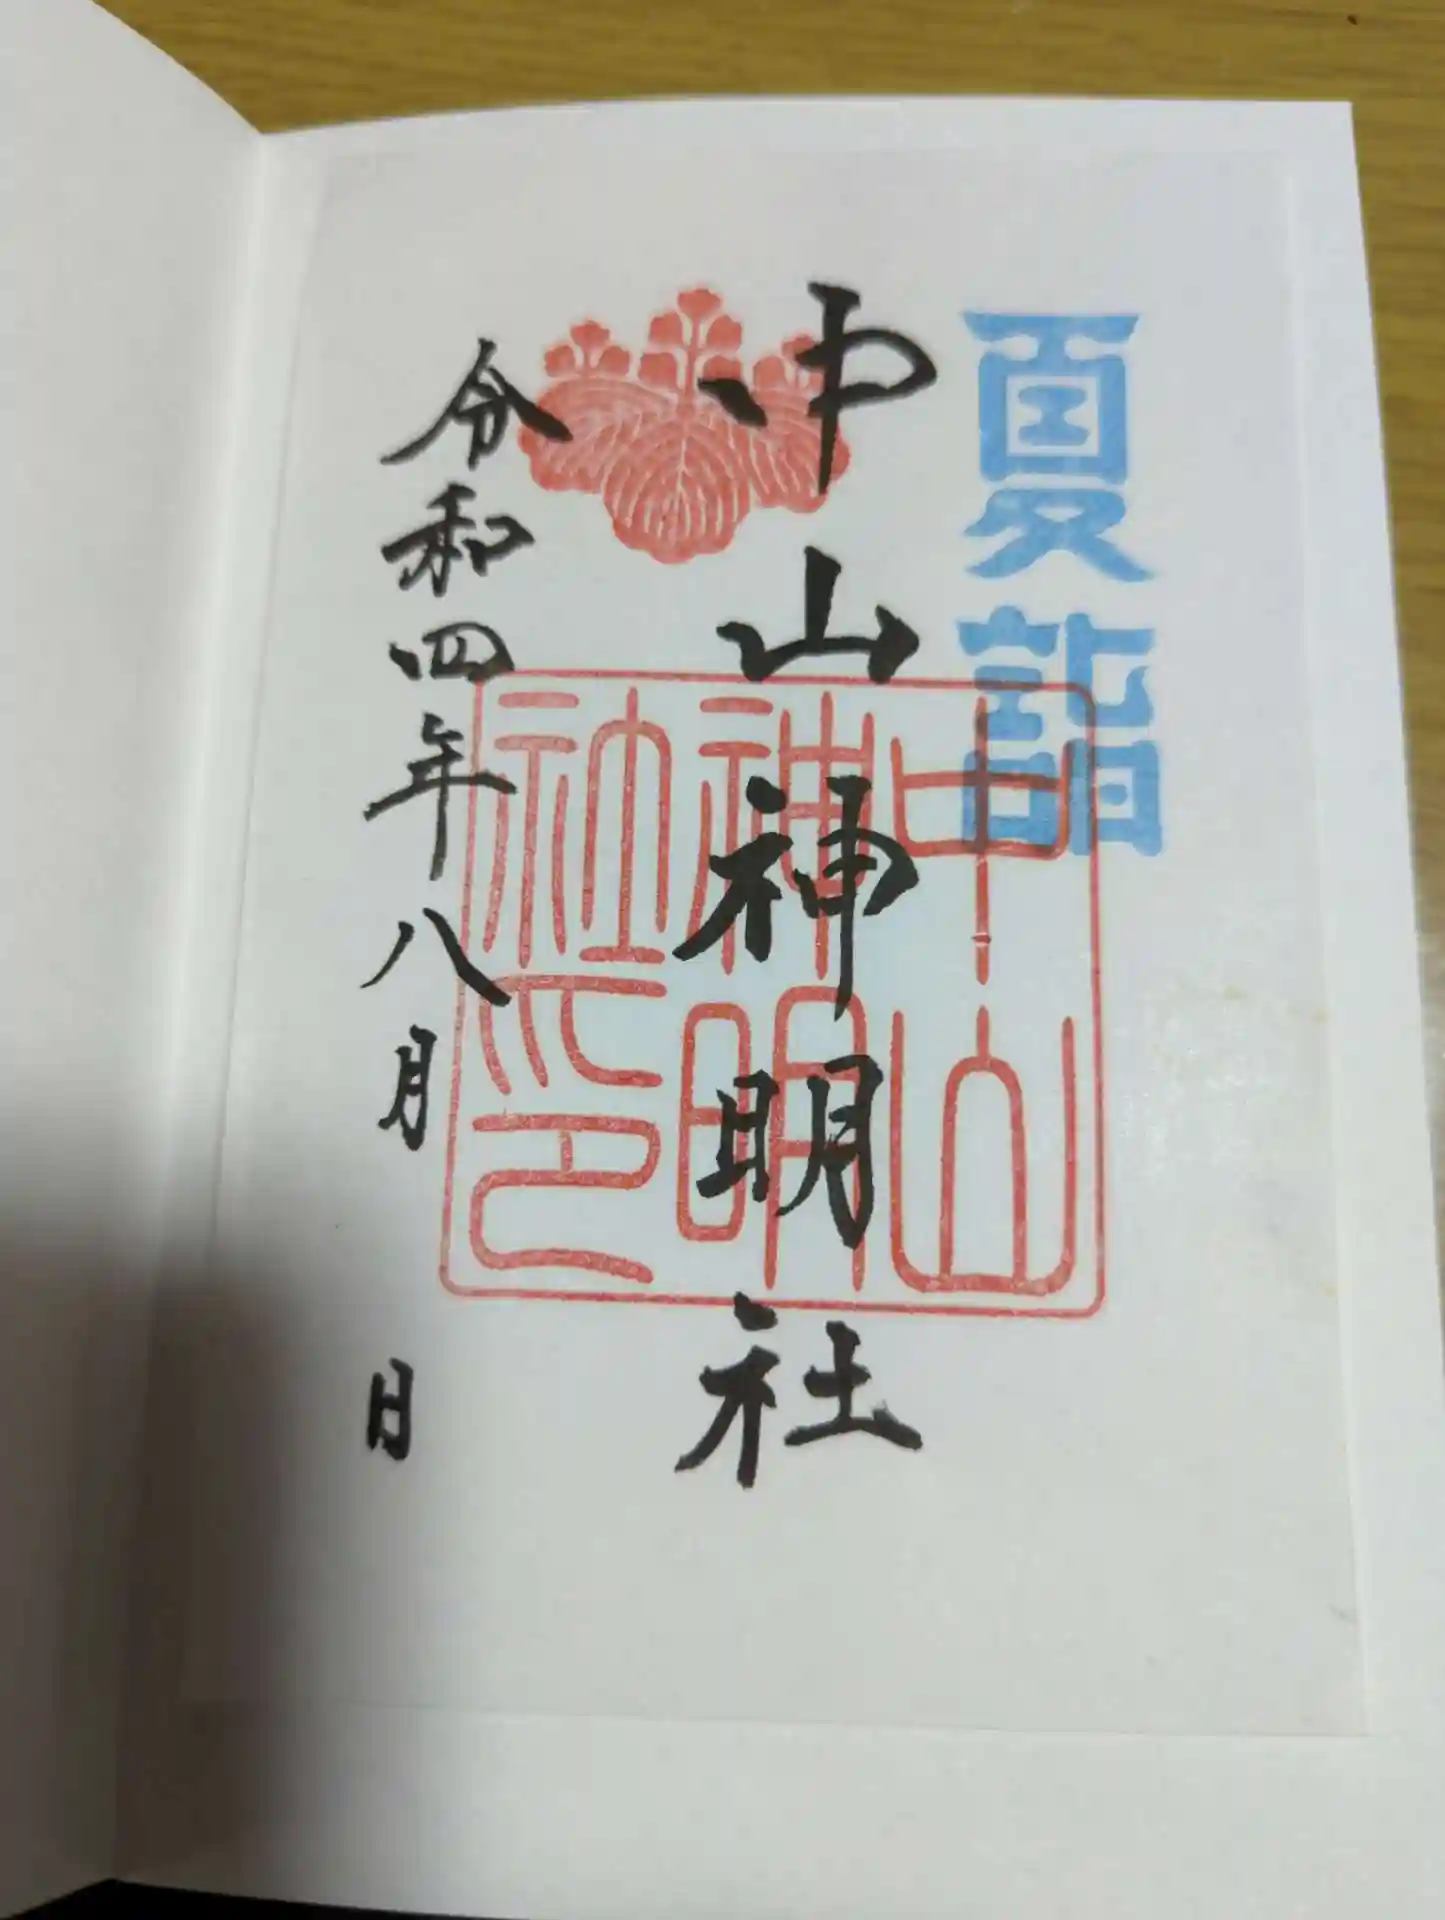 夏詣
中山神明社
中山
神明
社之印
令和四年八月 日